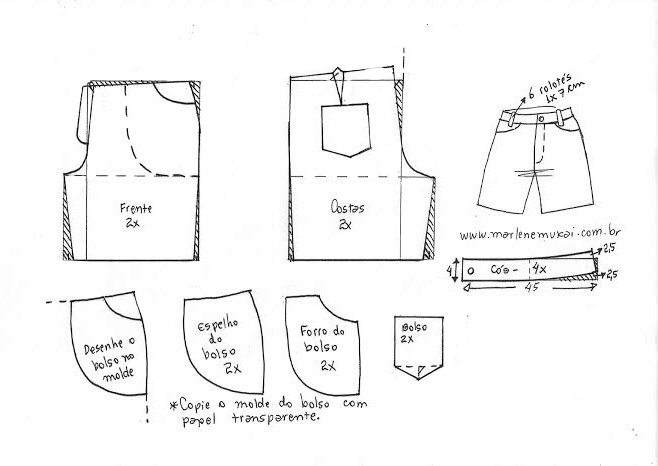 6 rolotés
1x7cm
Frente
2x
Costas
2x
www.marlenemukai.com.br
2,5
4
Cós - 4x
2,5
45
Desenhe o
bolso no
molde
Espelho
do
bolso
2x
Forro do
bolso
2x
Bolso
2x
*Copie o molde do bolso com
papel transparente.